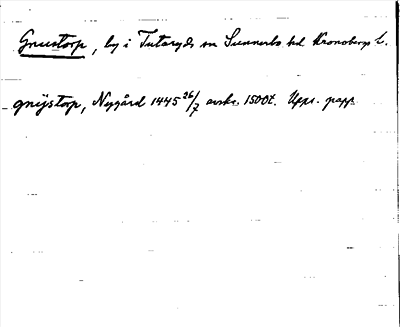 Gnustorp, by i Tutaryds sn Sunnerbo hd Kronobergs l.
gnijstorp, Nygård 1445 26/7 avskr. 1500t. Upps. papp.